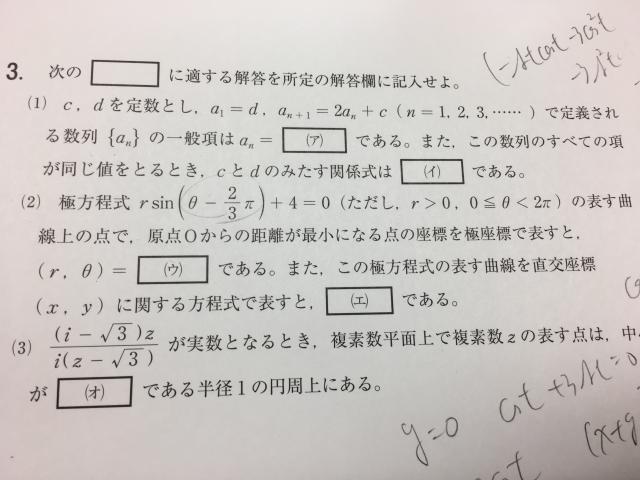 3. 次の □ に適する解答を所定の解答欄に記入せよ。
(1) c, d を定数とし, a₁ = d, aₙ₊₁ = 2aₙ + c ( n = 1, 2, 3, …… ) で定義され
る数列 {aₙ} の一般項は aₙ = (ア) である。また, この数列のすべての項
が同じ値をとるとき, c と d のみたす関係式は (イ) である。
(2) 極方程式 r sin(θ − 2/3 π) + 4 = 0 (ただし, r > 0, 0 ≦ θ < 2π) の表す曲
線上の点で, 原点Oからの距離が最小になる点の座標を極座標で表すと,
( r, θ ) = (ウ) である。また, この極方程式の表す曲線を直交座標
( x, y ) に関する方程式で表すと, (エ) である。
(3) (i − √3)z / i(z − √3) が実数となるとき, 複素数平面上で複素数 z の表す点は, 中
が (オ) である半径1の円周上にある。
y=0
(x+y